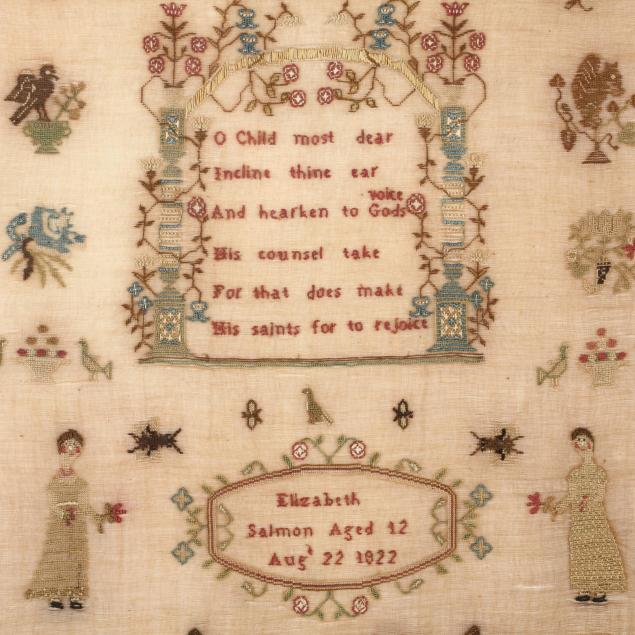 O Child most dear
Incline thine ear
voice
And hearken to Gods
His counsel take
For that does make
His saints for to rejoice
Elizabeth
Salmon Aged 12
Augt 22 1822